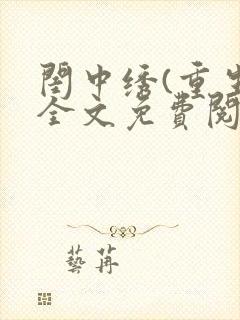 閨中绣(重生
全文免費閱
藝苒